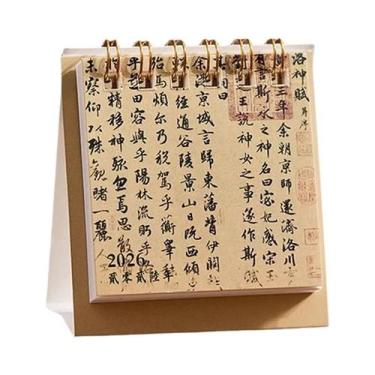 洛神賦
三年余朝京師還濟洛川
有言斯水之神名曰宓妃感宋玉
楚王說神女之事遂作斯賦
其詞曰
余從京域言歸東藩背伊闕
經通谷陵景山日既西傾
殆馬煩爾乃稅駕乎蘅皋
乎芝田容與乎陽林流眄乎
精移神駭忽焉思散
未察仰以殊觀睹一麗
2026
貳零貳陸